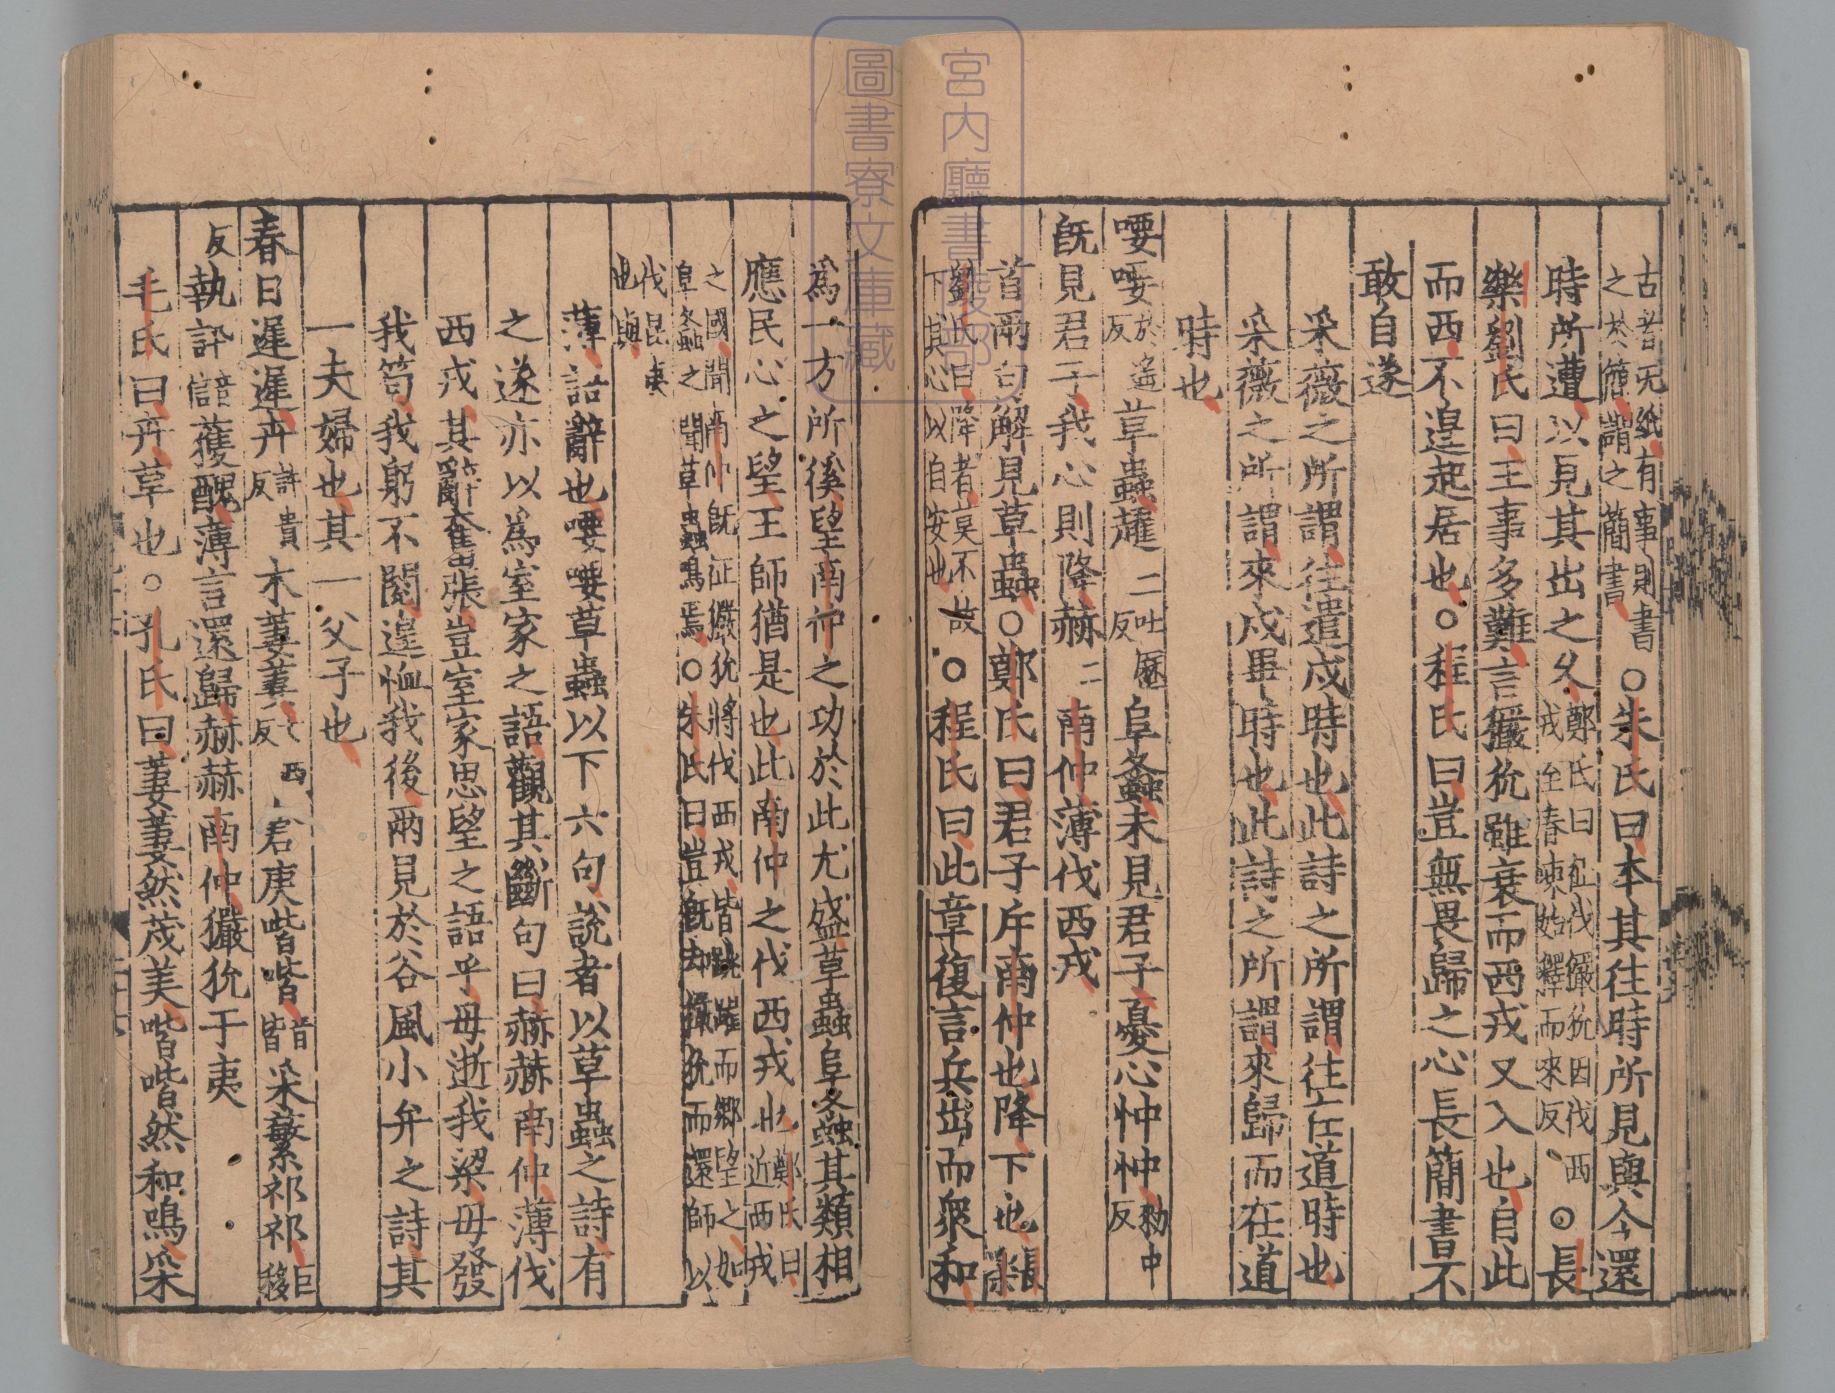 古者无紙有事則書之於簡謂之簡書○朱氏曰本其往時所見與今還
時所遭以見其出之久鄭氏曰征伐玁狁因伐西戎至春凍始釋而來反○長
樂劉氏曰王事多難言玁狁雖衰而西戎又入也自此
而西不遑起居也○程氏曰豈無畏歸之心長簡書不
敢自遂
采薇之所謂往遣戍時也此詩之所謂往在道時也
采薇之所謂來戍畢時也此詩之所謂來歸而在道
時也
喓喓於遙反草蟲趯二吐歷反阜螽未見君子憂心忡忡勑中反
既見君子我心則降赫二南仲薄伐西戎
首兩句解見草蟲○鄭氏曰君子斥南仲也降下也長樂
劉氏曰降者莫不下其心以自安也故○程氏曰此章復言兵出而衆和
為一方所徯望南仲之功於此尤盛草蟲阜螽其類相
應民心之望王師猶是也此南仲之伐西戎也鄭氏曰近西戎
之國聞南仲旣征玁狁將伐西戎皆跳躍而鄉望之如阜螽之聞草蟲鳴焉○朱氏曰豈旣却玁狁而還師以
伐昆夷也與
薄語辭也喓喓草蟲以下六句說者以草蟲之詩有
之遂亦以為室家之語觀其斷句曰赫赫南仲薄伐
西戎其辭奮張豈室家思望之語乎毋逝我梁毋發
我笱我躬不閱遑恤我後兩見於谷風小弁之詩其
一夫婦也其一父子也
春日遲遲卉許貴反木萋萋七西反倉庚喈喈音皆采蘩祁祁巨移
反執訊音信獲醜薄言還歸赫赫南仲玁狁于夷
毛氏曰卉草也○孔氏曰萋萋然茂美喈喈然和鳴采
宮內廳書陵部
圖書寮文庫藏